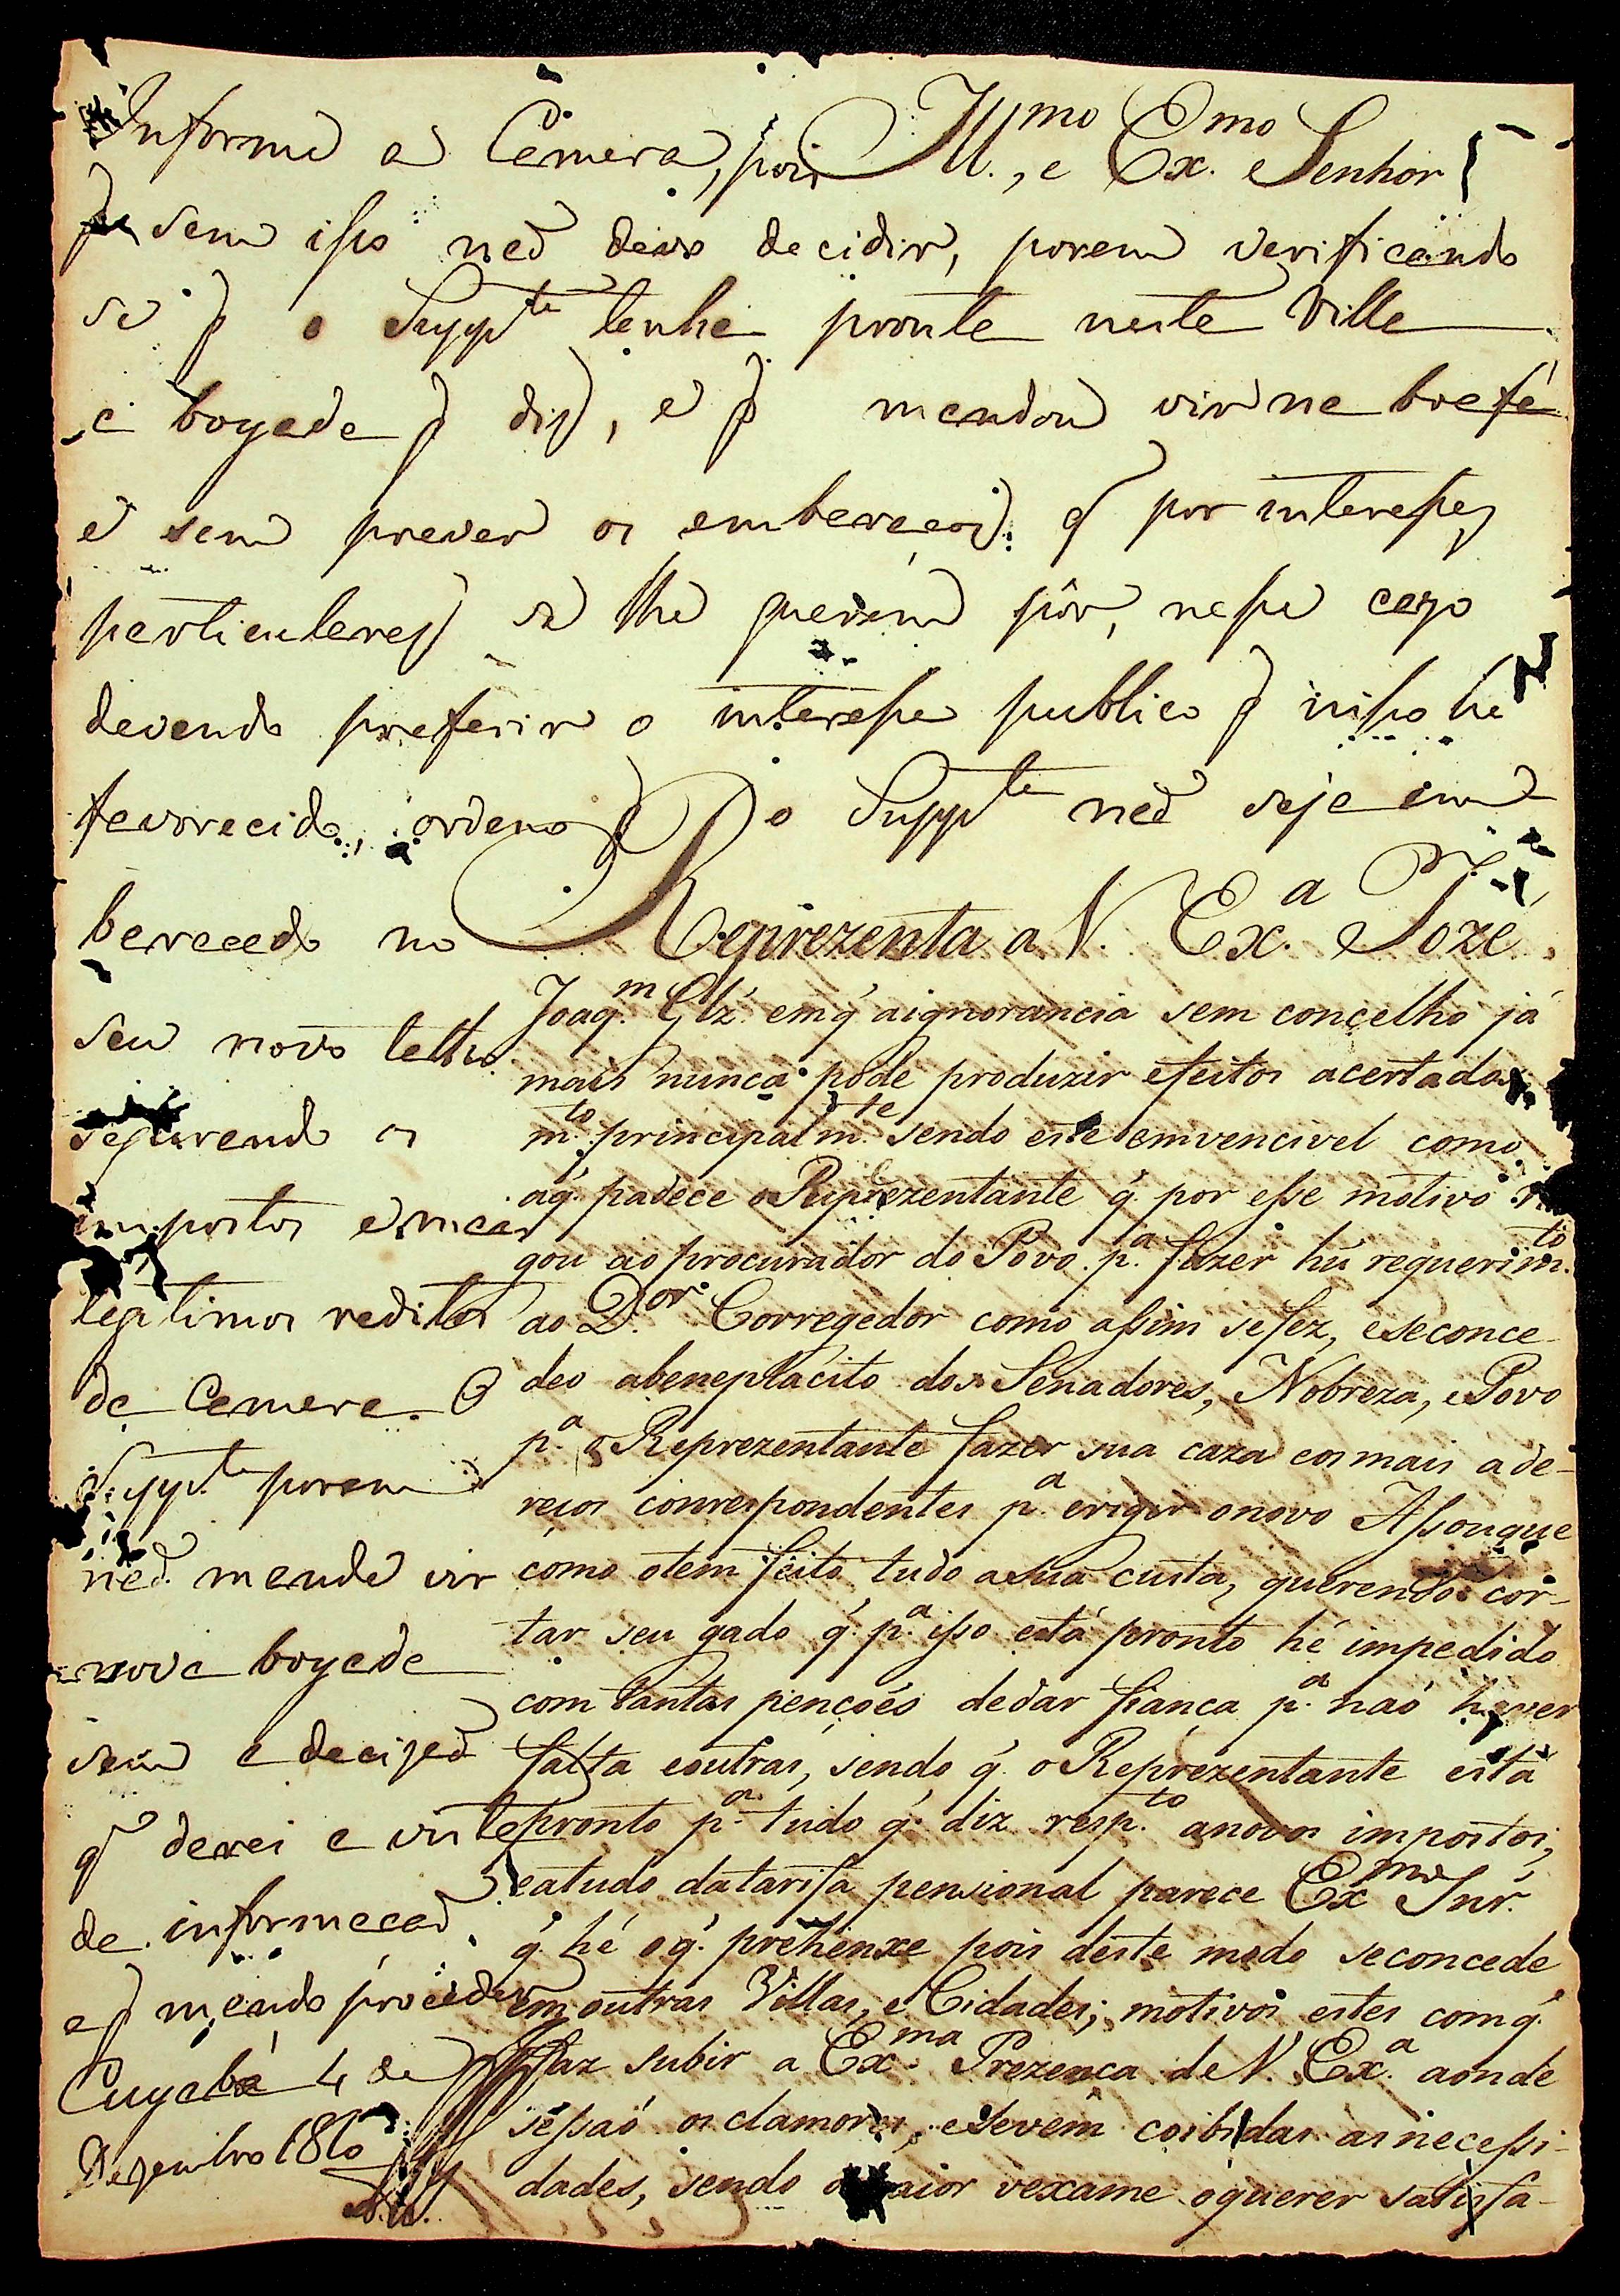 Informe a Camera, pois
q sem isso naõ devo decidir, porem verificando
se q o Supp.te tenha pronta nesta Villa
a boyada q diz, e q mandou vir na boa fé
e sem prever os embaraços q por interesses
particulares se lhe querem pôr, nesse cazo
devendo preferir o interesse publico q nisso hé
favorecido, ordeno q o Supp.te naõ seja em
baracado no
seu novo talho
segurando os
impostos e mais
legitimos reditos
da Camera. O
Supp.te porem
naõ mande vir
nova boyada
sem a decizaõ
q darei a vista
da informacaõ
q mando proceder
Cuyabá 4 de
Dezembro 18
Ill.mo, e Ex.mo Senhor
Reprezenta a V. Ex.a Jozé
Joaq.m Glz' em q' aignorancia sem concelho já
mais nunca pode produzir efeitos acertados
m.to principalm.te sendo esta emvencivel como
aq'. padece o Reprezentante q'. por esse motivo
gou ao procurador do Povo p.a fazer hú requerim.to
ao D.or Corregedor como assim sefez, eseconce
deo abeneplacito dos Senadores, Nobreza, e Povo
p.a o Reprezentante fazer sua caza eos mais ade-
reços correspondentes p.a erigir onovo Assougue
como otem feito, tudo asua custa, querendo cor-
tar seu gado q'. p.a isso está pronto hé impedido
com tantas pençoés dedar fiança p.a naó haver
falta eoutras, sendo q'. o Reprezentante está
pronto p.a tudo q'. diz resp.to anovos impostos,
eatudo datarifa pensional parece Ex.mo Snr.
q'. hé oq'. prehenxe pois deste modo seconcede
em outras Villas, e Cidades; motivos estes comq'.
faz subir a Ex.ma Prezença de V. Ex.a aonde
sessaó os clamores, esevem coibidas as necessi-
dades, sendo o maior vexame oquerer satisfa-